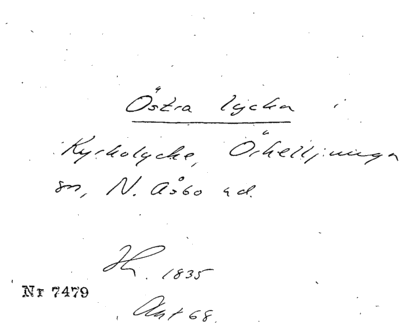 Östra lycka i
Kyrkolycke, Örkelljunga
sn, N. Åsbo hd.
Sk. 1835
Nr 7479
Akt 68.